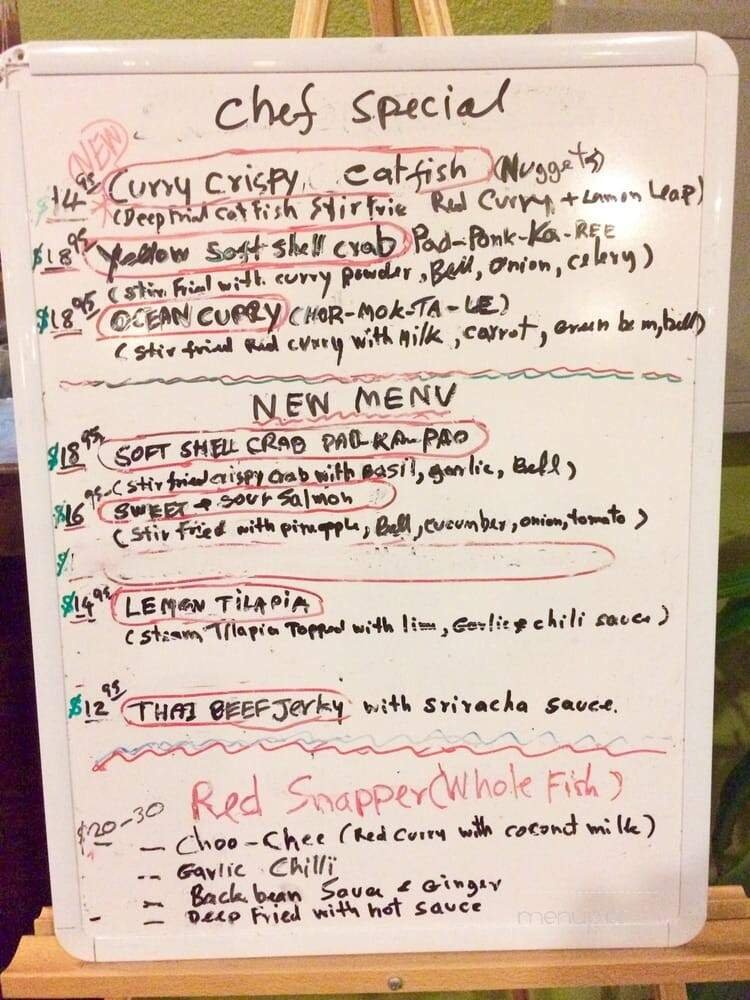 Chef Special
NEW
$14.95 Curry Crispy Catfish (Nuggets)
(Deep Fried Catfish Stir Frie Red Curry + Lamon Leap)
$18.95 Yellow Soft Shell Crab Pad-Ponk-Ka-REE
(stir. Fried with curry powder, Bell, onion, celery)
$18.95 OCEAN CURRY (CHOR-MOK-TA-LE)
(stir fried Red curry with Milk, carrot, green bean, bell)
NEW MENU
$18.95 SOFT SHELL CRAB PAD-KA-PAO
(stir fried crispy crab with basil, garlic, Bell)
$16.95 SWEET & SOUR Salmon
(stir fried with pineapple, Bell, cucumber, onion, tomato)
$14.95 LEMON TILAPIA
(steam Tilapia Topped with lime, Garlic & chili sauce)
$12.95 THAI BEEF Jerky with sriracha sauce.
Red Snapper (Whole Fish)
$20-30
- Choo-Chee (Red curry with coconut milk)
-- Garlic Chilli
- Back bean Sauce & Ginger
- Deep Fried with hot sauce